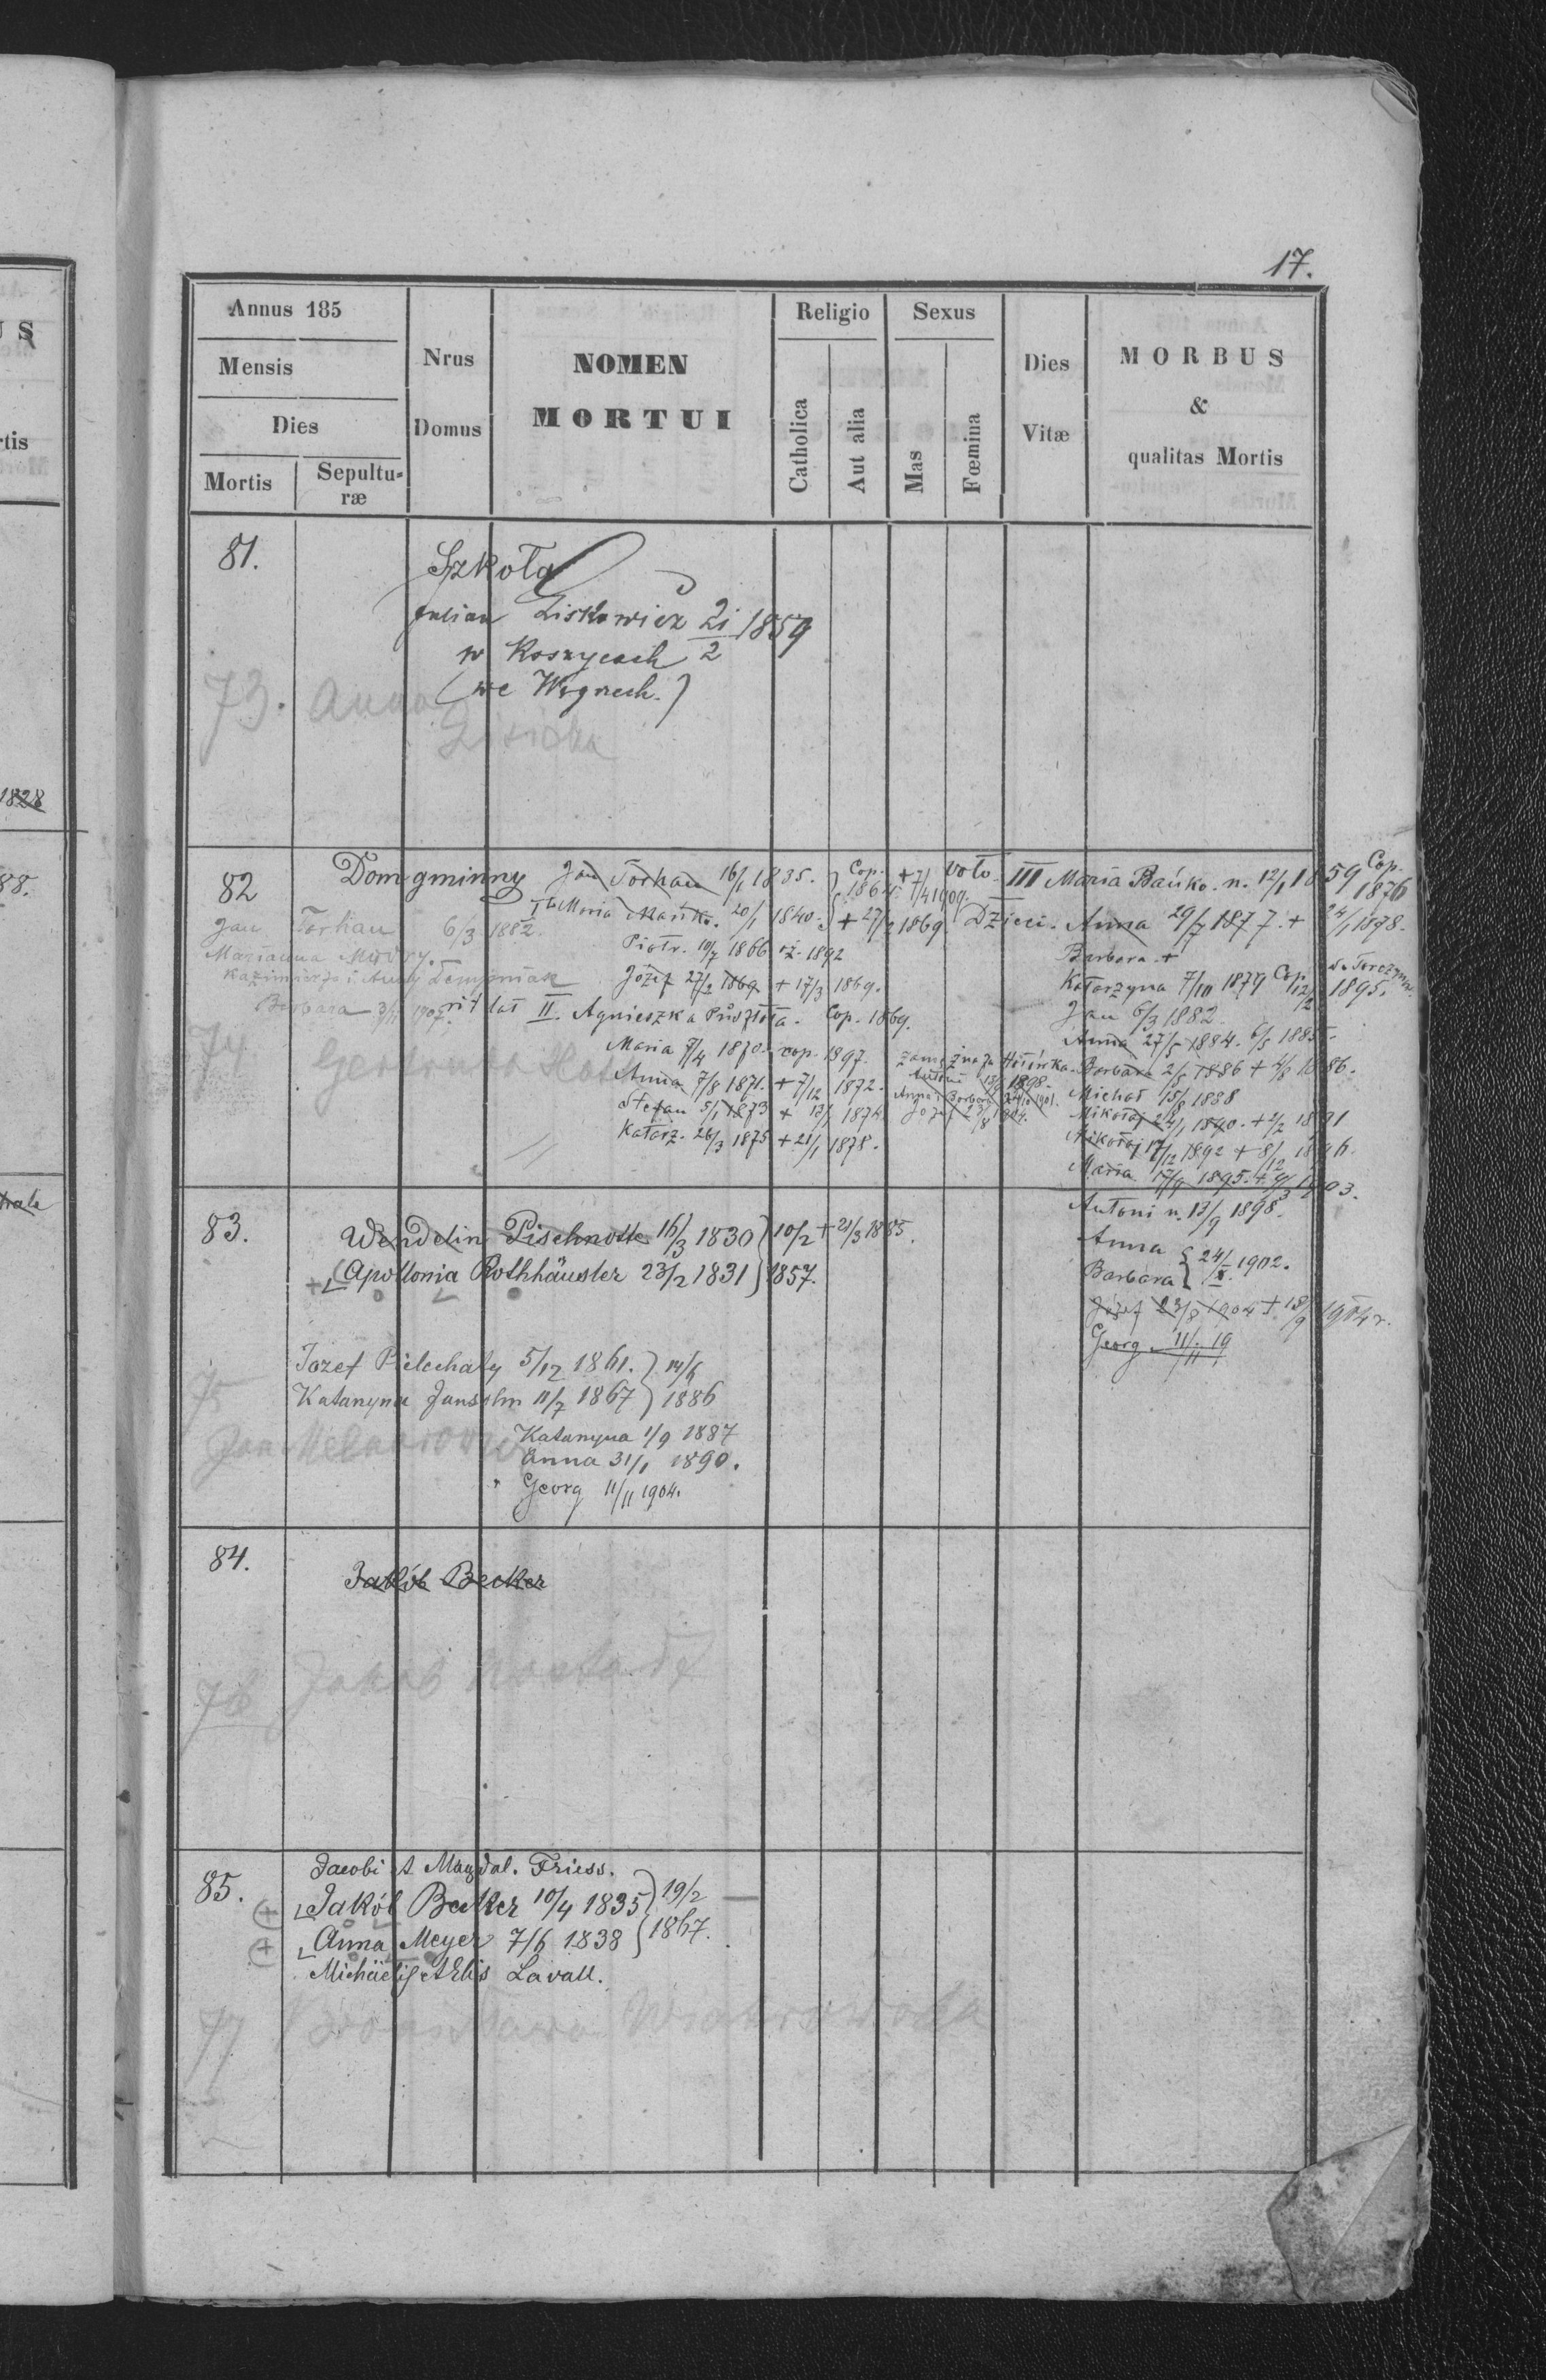 17.
Annus 185
Mensis
Dies
Mortis
Sepultu-
ræ
Nrus
Domus
NOMEN
MORTUI
Religio
Catholica
Aut alia
Sexus
Mas
Fœmina
Dies
Vitæ
MORBUS
&
qualitas Mortis
81.
Szkoła
Julian Liskowicz 21/2 1859
w Koszycach
(we Węgrzech.)
73. Anna
82
Dom gminny
Jan Torhan 16/1 1835. Cop. 1864
Maria Mańko. 20/1 1840. + 27/2 1869
Piotr. 10/7 1866 oż. 1892
Józef 27/2 1869 + 17/3 1869.
II. Agnieszka Cop. 1869.
Maria 7/4 1870. cop. 1897.
Anna 7/8 1871. + 7/12 1872.
Stefan 5/1 1873 + 13/1 1874
Katarz. 26/3 1875 + 21/1 1878.
Jan Torhan 6/3 1882.
Marianna
Kazimierza i Anny
Barbara
74 Gertruda
voto III Maria Bańko. n. 12/1 1859 Cop. 1876
Dzieci. Anna 29/7 1877. + 24/1 1878.
Barbara +
Katarzyna 7/10 1879 Cop. 1895.
Jan 6/3 1882
Anna 27/5 1884. 6/5 1885.
Barbara 2/5 1886 + 4/8 1886.
Michał 15/8 1888
Mikołaj 24/1 1890. + 2/2 1891
Mikołaj 17/12 1892 + 8/12 1896.
Maria 17/9 1895. + 1903.
Antoni n. 13/9 1898.
Anna
Barbara } 24/X 1902.
Józef 23/8 1904 + 18/9 1904 r.
Georg 11/11 19
Antoni 13/9 1898.
Anna i Barbara 24/10 1901.
Józef 23/8 1904.
83.
Wendelin Pischnotte 16/3 1830 } 10/2 + 21/3 1885.
Apollonia Rothhäusler 23/2 1831 } 1857.
Jozef Pielechaty 5/12 1861. } 14/6
Katanyna 11/7 1867 } 1886
Katanyna 1/9 1887
Anna 31/1 1890.
Georg 11/11 1904.
75
Jan
84.
Jakób Becker
76 Jakob
85.
Jacobi et Magdal. Friess.
Jakób Becker 10/4 1835 } 19/2
Anna Meyer 7/6 1838 } 1867.
Michäelis et Elis Lavall.
77 Bronisława